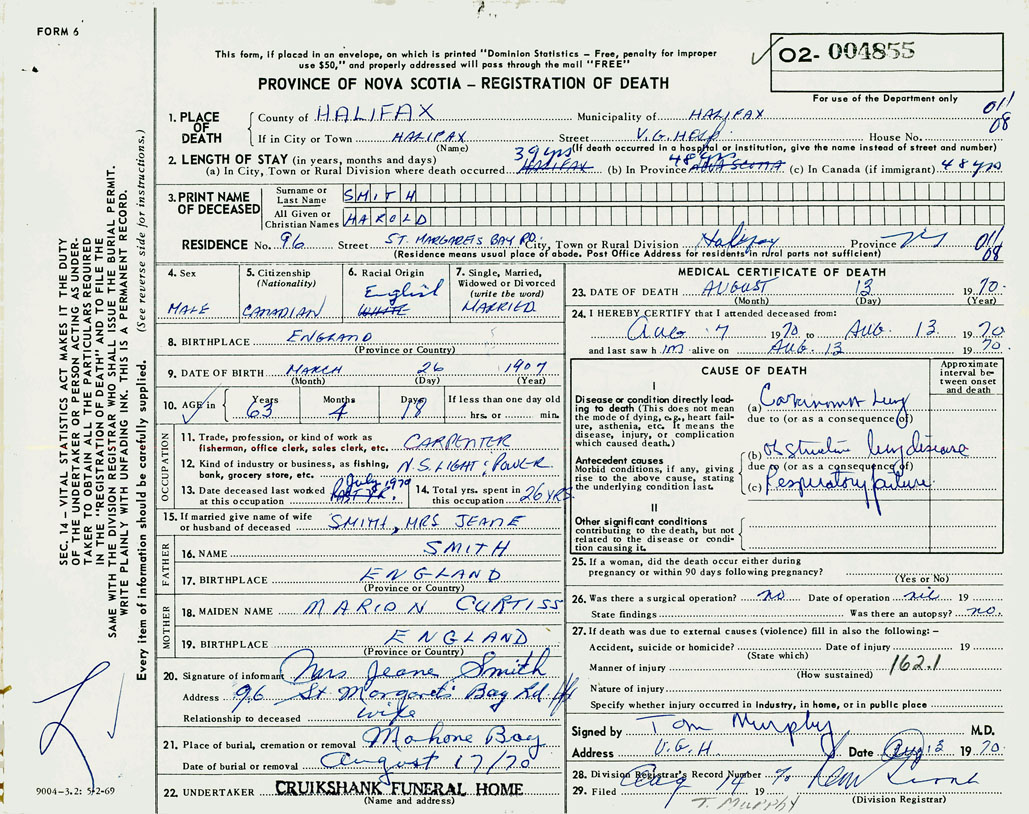 FORM 6
This form, if placed in an envelope, on which is printed "Dominion Statistics – Free, penalty for improper
use $50," and properly addressed will pass through the mail "FREE"
PROVINCE OF NOVA SCOTIA – REGISTRATION OF DEATH
02- 004855
For use of the Department only
011
08
1. PLACE OF DEATH
County of HALIFAX Municipality of HALIFAX
If in City or Town HALIFAX Street V.G. HOSP. House No.
(Name) (If death occurred in a hospital or institution, give the name instead of street and number)
2. LENGTH OF STAY (in years, months and days)
39 yrs 48 yrs
(a) In City, Town or Rural Division where death occurred HALIFAX (b) In Province NOVA SCOTIA (c) In Canada (if immigrant) 48 yrs
3. PRINT NAME OF DECEASED
Surname or Last Name SMITH
All Given or Christian Names HAROLD
RESIDENCE No. 96 Street ST. MARGARETS BAY RD. City, Town or Rural Division Halifax Province NS
011
08
(Residence means usual place of abode. Post Office Address for residents in rural parts not sufficient)
4. Sex
MALE
5. Citizenship
(Nationality)
CANADIAN
6. Racial Origin
English
WHITE
7. Single, Married,
Widowed or Divorced
(write the word)
MARRIED
8. BIRTHPLACE ENGLAND
(Province or Country)
9. DATE OF BIRTH MARCH 26 1907
(Month) (Day) (Year)
10. AGE in Years Months Days If less than one day old
63 4 18 hrs. or min.
OCCUPATION
11. Trade, profession, or kind of work as
fisherman, office clerk, sales clerk, etc. CARPENTER
12. Kind of industry or business, as fishing,
bank, grocery store, etc. N.S. LIGHT & POWER
13. Date deceased last worked
at this occupation July 1970
14. Total yrs. spent in
this occupation 26 YRS.
15. If married give name of wife
or husband of deceased SMITH, MRS JEANE
FATHER
16. NAME SMITH
17. BIRTHPLACE ENGLAND
(Province or Country)
MOTHER
18. MAIDEN NAME MARION CURTISS
19. BIRTHPLACE ENGLAND
(Province or Country)
20. Signature of informant Mrs Jeane Smith
Address 96 St Margaret's Bay Rd Hfx
Relationship to deceased wife
21. Place of burial, cremation or removal Mahone Bay
Date of burial or removal August 17/70
22. UNDERTAKER CRUIKSHANK FUNERAL HOME
(Name and address)
MEDICAL CERTIFICATE OF DEATH
23. DATE OF DEATH AUGUST 13 1970
(Month) (Day) (Year)
24. I HEREBY CERTIFY that I attended deceased from:
Aug 7 1970 to AUG. 13 1970
and last saw him alive on AUG. 13 1970
CAUSE OF DEATH
Approximate
interval be-
tween onset
and death
I
Disease or condition directly lead-
ing to death (This does not mean
the mode of dying, e.g., heart fail-
ure, asthenia, etc. It means the
disease, injury, or complication
which caused death.)
(a) Carcinoma Lung
due to (or as a consequence of)
Antecedent causes
Morbid conditions, if any, giving
rise to the above cause, stating
the underlying condition last.
(b) Obstructive lung disease
due to (or as a consequence of)
(c) Respiratory failure
II
Other significant conditions
contributing to the death, but not
related to the disease or condi-
tion causing it.
25. If a woman, did the death occur either during
pregnancy or within 90 days following pregnancy?
(Yes or No)
26. Was there a surgical operation? no Date of operation nil 19
State findings Was there an autopsy? no
27. If death was due to external causes (violence) fill in also the following: –
Accident, suicide or homicide? Date of injury 19
(State which)
Manner of injury 162.1
(How sustained)
Nature of injury
Specify whether injury occurred in industry, in home, or in public place
Signed by Tom Murphy M.D.
Address V.G.H Date Aug 13 1970
28. Division Registrar's Record Number
29. Filed Aug 14 19 70
(Division Registrar)
T. MURPHY
SEC. 14 – VITAL STATISTICS ACT MAKES IT THE DUTY
OF THE UNDERTAKER OR PERSON ACTING AS UNDER-
TAKER TO OBTAIN ALL THE PARTICULARS REQUIRED
IN THE "REGISTRATION OF DEATH" AND TO FILE THE
SAME WITH THE DIVISION REGISTRAR WHO SHALL ISSUE THE BURIAL PERMIT.
WRITE PLAINLY WITH UNFADING INK. THIS IS A PERMANENT RECORD.
Every item of information should be carefully supplied. (See reverse side for instructions.)
9004-3.2: 5-2-69